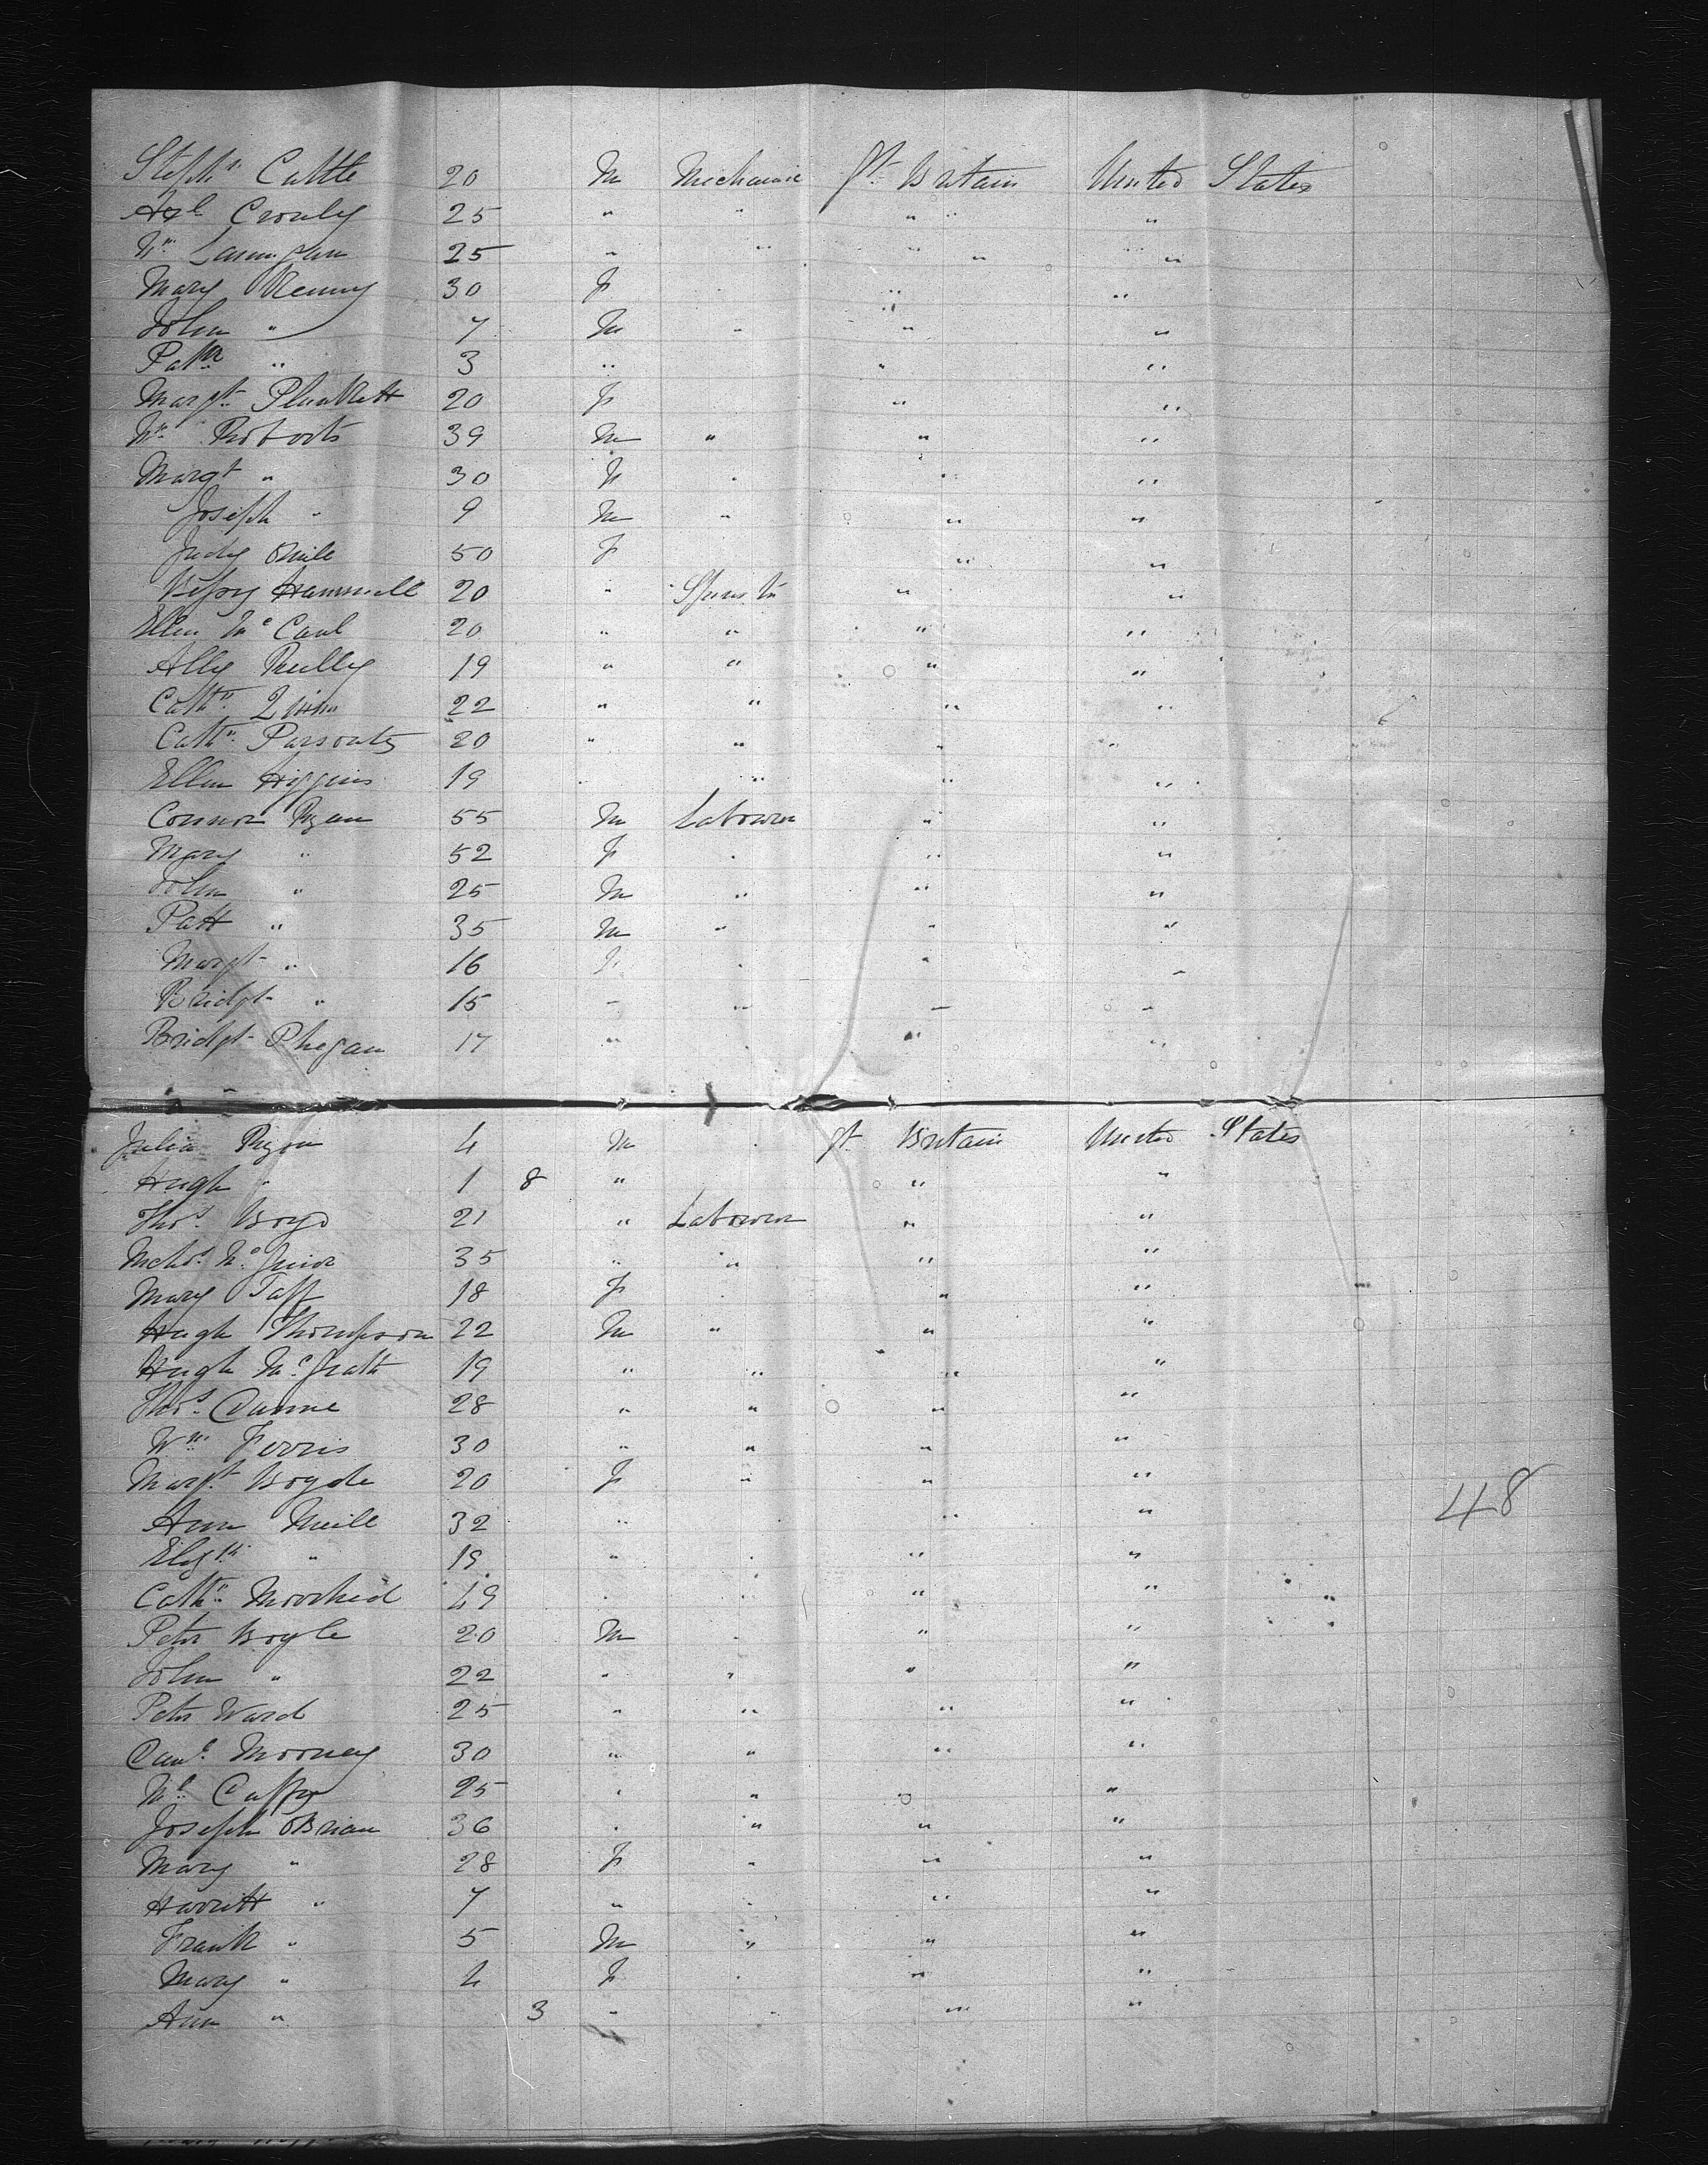 Stephn Cattle 20 M Mechanic Gt. Britain United States
Cronly 25 " " " " "
Wm Lannigan 25 " " " " "
Mary Kenny 30 F " " "
John " 7 M " " "
Patk " 3 " " "
Margt Plunkett 20 F " "
Wm Roberts 39 M " " "
Margt " 30 F " " "
Joseph " 9 M " " "
Judy ONeile 50 F " "
Betsy Hammell 20 " Spinstr " "
Ellen Mc Caul 20 " " " "
Ally Reilly 19 " " " "
Cathn Quinn 22 " " " "
Cathn 20 " " " "
Ellen Higgins 19 " " " "
Connor Ryan 55 M Labourer " "
Mary " 52 F " " "
John " 25 M " " "
Patt " 35 M " " "
Margt " 16 F " " "
Bridgt " 15 " " " "
Bridgt Phegan 17 " " " "
Julia Ryan 4 M Gt. Britain United States
Hugh " 1 8 " " "
Thos. Boyd 21 " Labourer " "
Michs. 35 " " " "
Mary Taff 18 F " " "
Hugh Thompson 22 M " " "
Hugh Mc Grath 19 " " " "
Thos. Dunne 28 " " " "
Wm Ferris 30 " " " "
Margt. Boyde 20 F " " "
Ann Neill 32 " " "
Elizth " 19 " " " "
Cathn Moorhed 49 " " " "
Peter Boyle 20 M " " "
John " 22 " " " "
Peter Ward 25 " " " "
Danl. Mooney 30 " " " "
Caffry 25 " " " "
Joseph OBrian 36 " " " "
Mary " 28 F " " "
Harritt " 7 " " " "
Frank " 5 M " " "
Mary " 4 F " " "
Ann " 3 " " " "
48